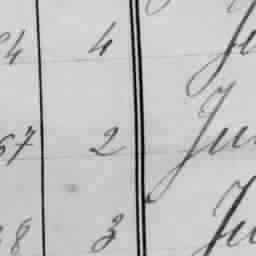 4 4 Ju
67 2 Ju
8 3 Ju